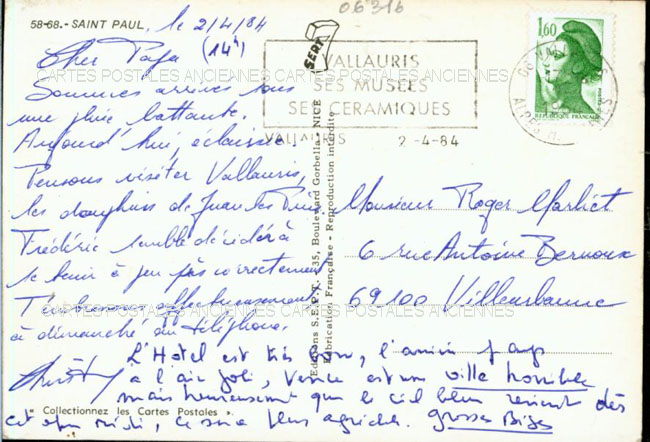 06316
58-68. - SAINT PAUL, le 2/4/84
(14h)
Cher Papa
Sommes arrivés sous
une pluie battante.
Aujourd'hui, éclaircie
Pensons visiter Vallauris,
les dauphins de Juan les Pins.
Frédéric semble décidé à
se tenir à peu près correctement
T'embrassons affectueusement
à dimanche au téléphone.
L'Hotel est très bon, l'ami
a l'air joli, Vence est une ville horrible
mais heureusement que le ciel bleu revient dès
cet après midi, ce sera plus agréable. grosses Bises
" Collectionnez les Cartes Postales "
SEPT
VALLAURIS
SES MUSÉES
SES CERAMIQUES
VALLAURIS 2-4-84
1,60
REPUBLIQUE FRANÇAISE
06 VALLAURIS
Editions S.E.P.T. - 235, Boulevard Gorbella - NICE
Fabrication Française - Reproduction interdite
Monsieur Roger
6 rue Antoine Bernoux
69100 Villeurbanne
CARTES POSTALES ANCIENNES CARTES POSTALES ANCIENNES
CARTES POSTALES ANCIENNES CARTES POSTALES ANCIENNES